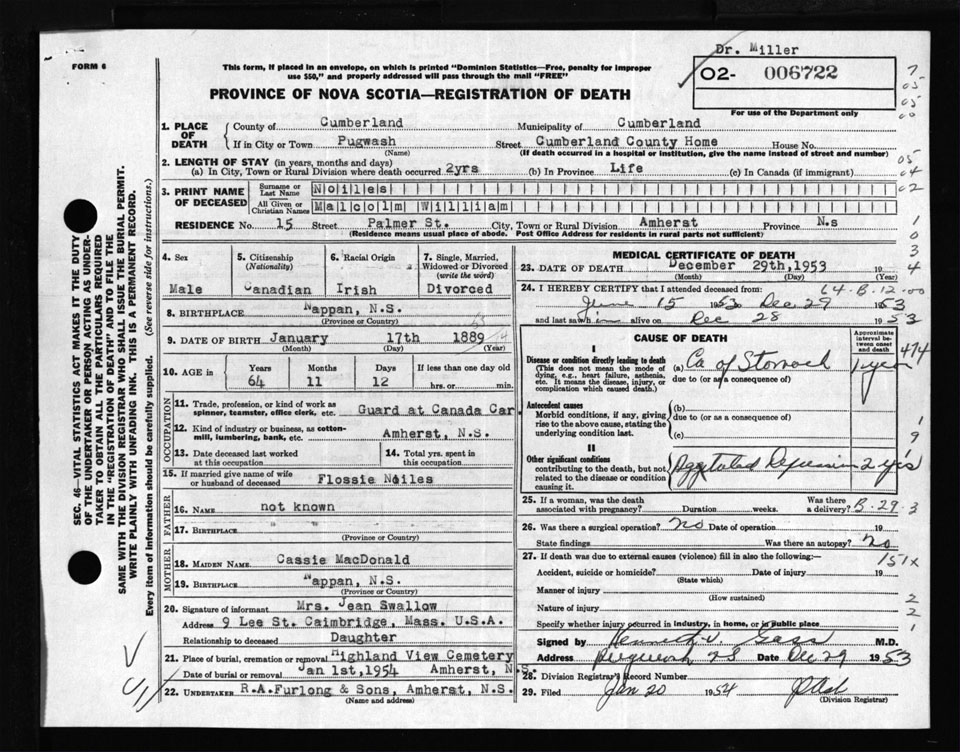 Dr. Miller
FORM 6
This form, if placed in an envelope, on which is printed "Dominion Statistics—Free, penalty for improper
use $50," and properly addressed will pass through the mail "FREE"
02- 006722
For use of the Department only
PROVINCE OF NOVA SCOTIA—REGISTRATION OF DEATH
1. PLACE OF DEATH
County of Cumberland Municipality of Cumberland
If in City or Town Pugwash Street Cumberland County Home House No.
(Name) (If death occurred in a hospital or institution, give the name instead of street and number)
2. LENGTH OF STAY (in years, months and days)
(a) In City, Town or Rural Division where death occurred 2yrs (b) In Province Life (c) In Canada (if immigrant)
3. PRINT NAME OF DECEASED
Surname or Last Name Noiles
All Given or Christian Names Malcolm William
RESIDENCE No. 15 Street Palmer St. City, Town or Rural Division Amherst Province N.s
(Residence means usual place of abode. Post Office Address for residents in rural parts not sufficient)
4. Sex
Male
5. Citizenship (Nationality)
Canadian
6. Racial Origin
Irish
7. Single, Married, Widowed or Divorced (write the word)
Divorced
8. BIRTHPLACE Nappan, N.S.
(Province or Country)
9. DATE OF BIRTH January 17th 1889
(Month) (Day) (Year)
10. AGE in Years Months Days If less than one day old
64 11 12 hrs. or min.
OCCUPATION
11. Trade, profession, or kind of work as spinner, teamster, office clerk, etc. Guard at Canada Car.
12. Kind of industry or business, as cotton-mill, lumbering, bank, etc. Amherst, N.S.
13. Date deceased last worked at this occupation
14. Total yrs. spent in this occupation
15. If married give name of wife or husband of deceased Flossie Noiles
FATHER
16. Name not known
17. Birthplace " " "
(Province or Country)
MOTHER
18. Maiden Name Cassie MacDonald
19. Birthplace Nappan, N.S.
(Province or Country)
20. Signature of informant Mrs. Jean Swallow
Address 9 Lee St. Caimbridge, Mass. U.S.A.
Relationship to deceased Daughter
21. Place of burial, cremation or removal Highland View Cemetery
Date of burial or removal Jan 1st,1954 Amherst, N.S.
22. Undertaker R.A.Furlong & Sons, Amherst, N.S.
(Name and address)
MEDICAL CERTIFICATE OF DEATH
23. DATE OF DEATH December 29th,1953 19
(Month) (Day) (Year)
64-B-12-00
24. I HEREBY CERTIFY that I attended deceased from:
June 15 1953 Dec 29 1953
and last saw him alive on Dec 28 1953
CAUSE OF DEATH
Approximate interval between onset and death
I
Disease or condition directly leading to death
(This does not mean the mode of dying, e.g., heart failure, asthenia, etc. It means the disease, injury, or complication which caused death.)
(a) Ca of Stomach 1 year
due to (or as a consequence of)
Antecedent causes
Morbid conditions, if any, giving rise to the above cause, stating the underlying condition last.
(b)
due to (or as a consequence of)
(c)
II
Other significant conditions
contributing to the death, but not related to the disease or condition causing it.
Aggitated Depression 2 yrs
25. If a woman, was the death associated with pregnancy? Duration weeks. Was there a delivery? B-29-3
26. Was there a surgical operation? No Date of operation 19
State findings Was there an autopsy? No
151x
27. If death was due to external causes (violence) fill in also the following:—
Accident, suicide or homicide? Date of injury 19
(State which)
Manner of injury
(How sustained)
Nature of injury
Specify whether injury occurred in industry, in home, or in public place
Signed by Kenneth V. Gass M.D.
Address Pugwash NS Date Dec 29 1953
28. Division Registrar's Record Number
29. Filed Jan 20 1954
(Division Registrar)
SEC. 46—VITAL STATISTICS ACT MAKES IT THE DUTY
OF THE UNDERTAKER OR PERSON ACTING AS UNDER-
TAKER TO OBTAIN ALL THE PARTICULARS REQUIRED
IN THE "REGISTRATION OF DEATH" AND TO FILE THE
SAME WITH THE DIVISION REGISTRAR WHO SHALL ISSUE THE BURIAL PERMIT.
WRITE PLAINLY WITH UNFADING INK. THIS IS A PERMANENT RECORD.
Every item of information should be carefully supplied. (See reverse side for instructions.)
7
05
05
00
05
04
02
1
0
3
4
474
1
9
2
2
1